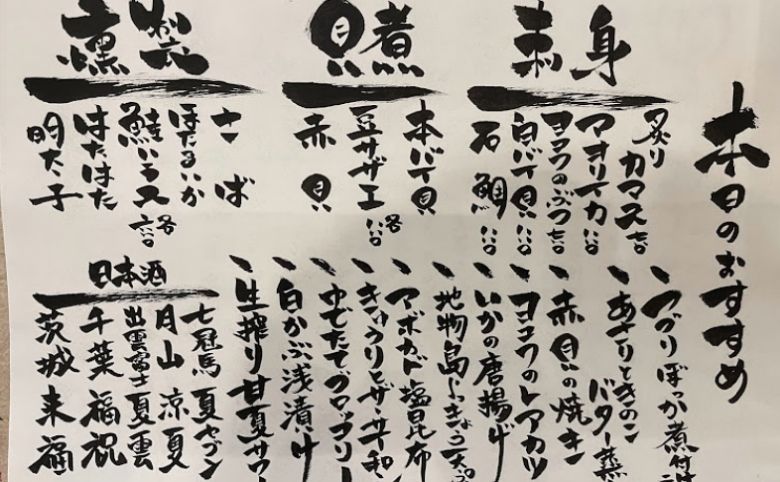 本日のおすすめ
刺身
炙りカマス 七〇〇
アオリイカ 八〇〇
ヨコワのぶつ 七〇〇
白バイ貝 八〇〇
石鯛 八〇〇
貝煮
本バイ貝
豆サザエ 各八〇〇
赤貝
燻製
さば
ほたるいか
鮭いろス 各六〇〇
はたはた
明太子
ツブリぼっか煮付け
あさりときのこバター蒸
赤貝の焼き
ヨコワのレアカツ
いかの唐揚げ
地物島らっきょう天ぷら
アボカド塩昆布
きゅうりとザーサイ和
ゆでたてブロッコリー
白かぶ浅漬け
生搾り甘夏サワー
日本酒
七冠馬 夏セブン
月山 涼夏
出雲富士 夏雲
千葉 福祝
茨城 来福